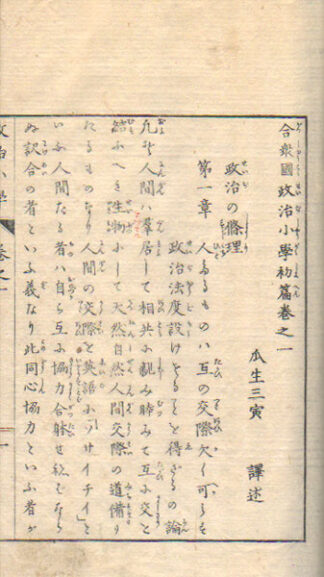 合衆國政治小學初篇卷之一
瓜生三寅 譯述
政治の條理
第一章 人たるものハ互の交際欠く可らす
政治法度設けさることを得ざるの論
凡そ人間ハ羣居して相共に親み睦みて互に交と
結ふへき生物にして天然自然人間交際の道備り
たるものなり人間の交際を英語に「サイチイ」と
いふ人間たる者ハ自ら互に協力合躰せ欲ばなら
ぬ訳合の者といふ義なり此同心協力といふ者が
政治小學 卷之一 一